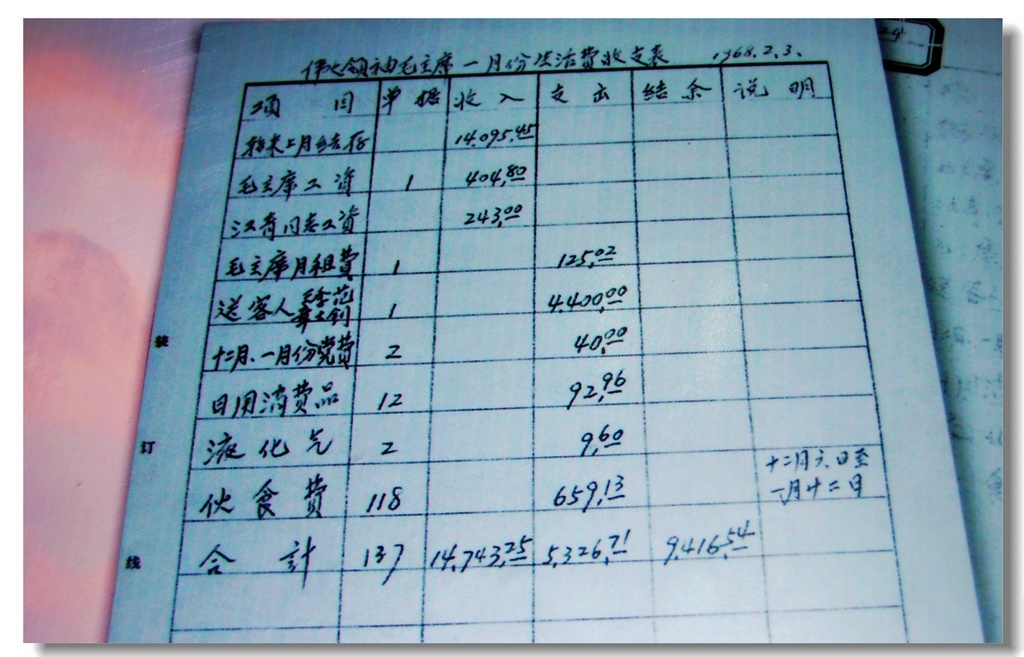 伟大领袖毛主席一月份生活费收支表 1968.2.3.
项目 单据 收入 支出 结余 说明
接末上月结存 14,095.45
毛主席工资 1 404.80
江青同志工资 243.00
毛主席月租费 1 125.02
送客人 王季范 章士钊 1 4,400.00
十二月、一月份党费 2 40.00
日用消费品 12 92.96
液化气 2 9.60
伙食费 118 659.13 十二月六日至一月十二日
合計 137 14,743.25 5,326.71 9,416.54
装
订
线